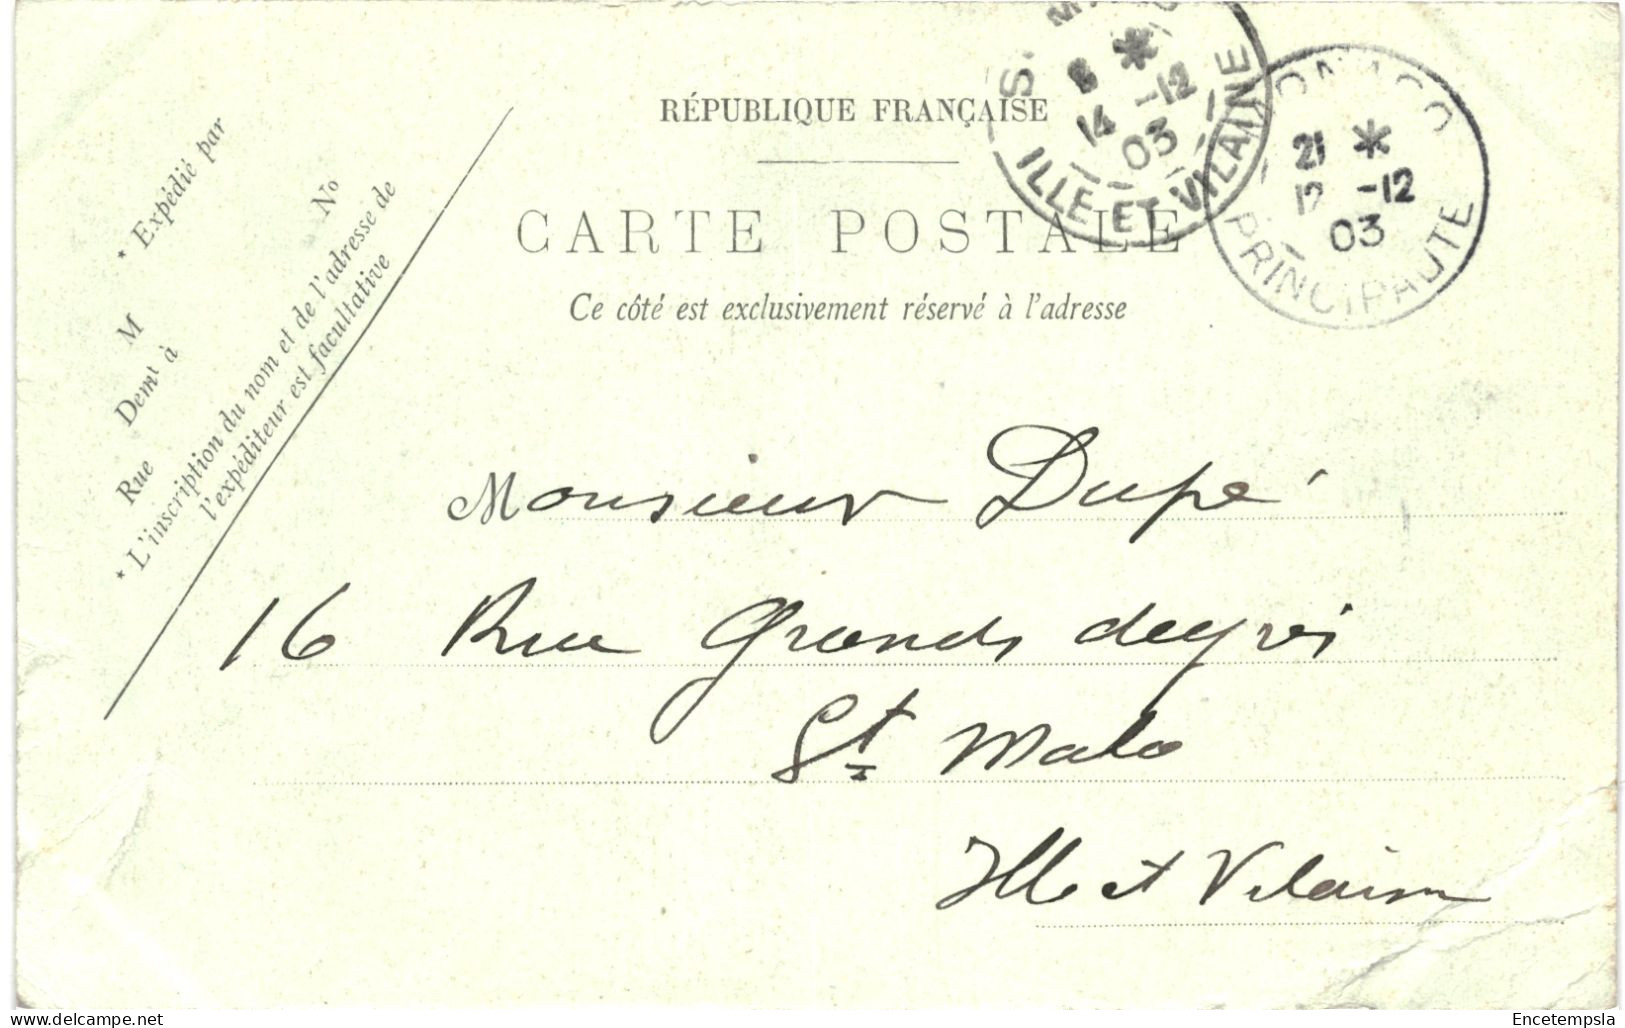 RÉPUBLIQUE FRANÇAISE
CARTE POSTALE
Ce côté est exclusivement réservé à l'adresse
* Expédié par
M
Demt à
Rue
No
* L'inscription du nom et de l'adresse de
l'expéditeur est facultative
S. M
8 *
14 -12
03
ILLE ET VILAINE
MONACO
21 *
12 -12
03
PRINCIPAUTE
Monsieur Dupé
16 Rue Grands degrés
St Malo
Ille et Vilaine
www.delcampe.net
Encetempsla